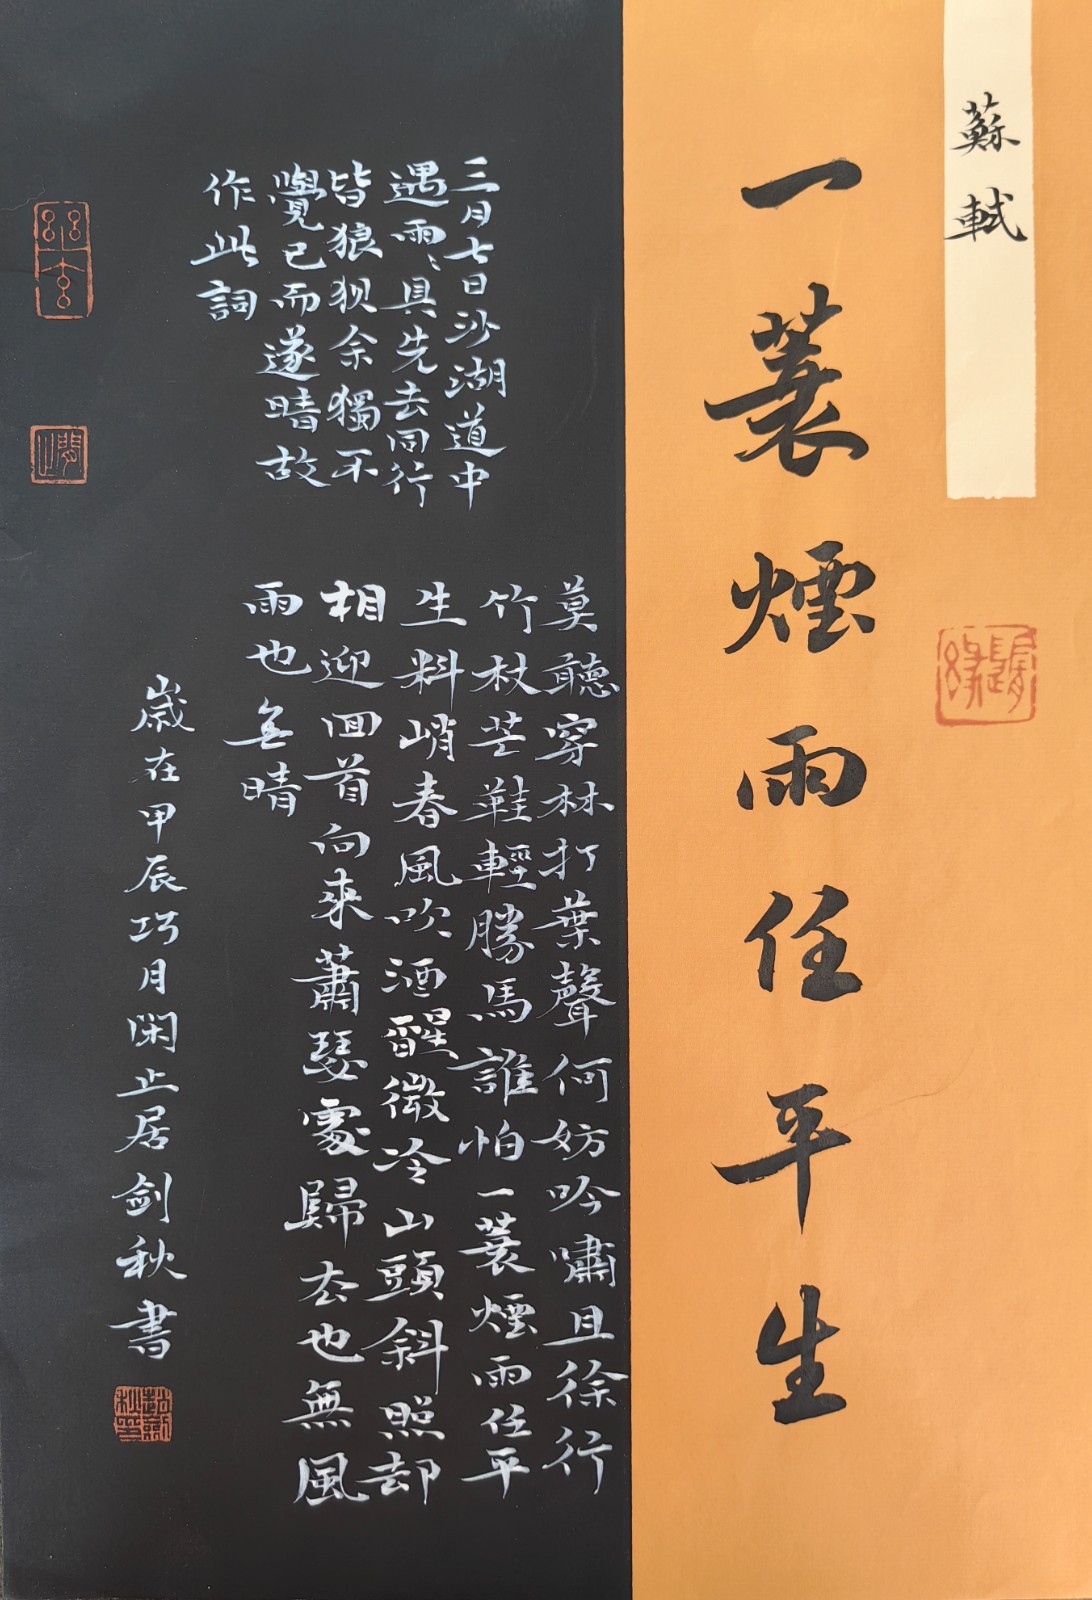 蘇軾
一蓑煙雨任平生
三月七日沙湖道中
遇雨〻具先去同行
皆狼狽余獨不
覺已而遂晴故
作此詞
莫聽穿林打葉聲何妨吟嘯且徐行
竹杖芒鞋輕勝馬誰怕一蓑煙雨任平
生料峭春風吹酒醒微冷山頭斜照却
相迎回首向來蕭瑟處歸去也無風
雨也无晴
歲在甲辰巧月閑止居剑秋書